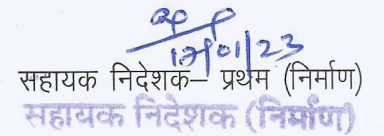 17/01/23
सहायक निदेशक– प्रथम (निर्माण)
सहायक निदेशक (निर्माण)